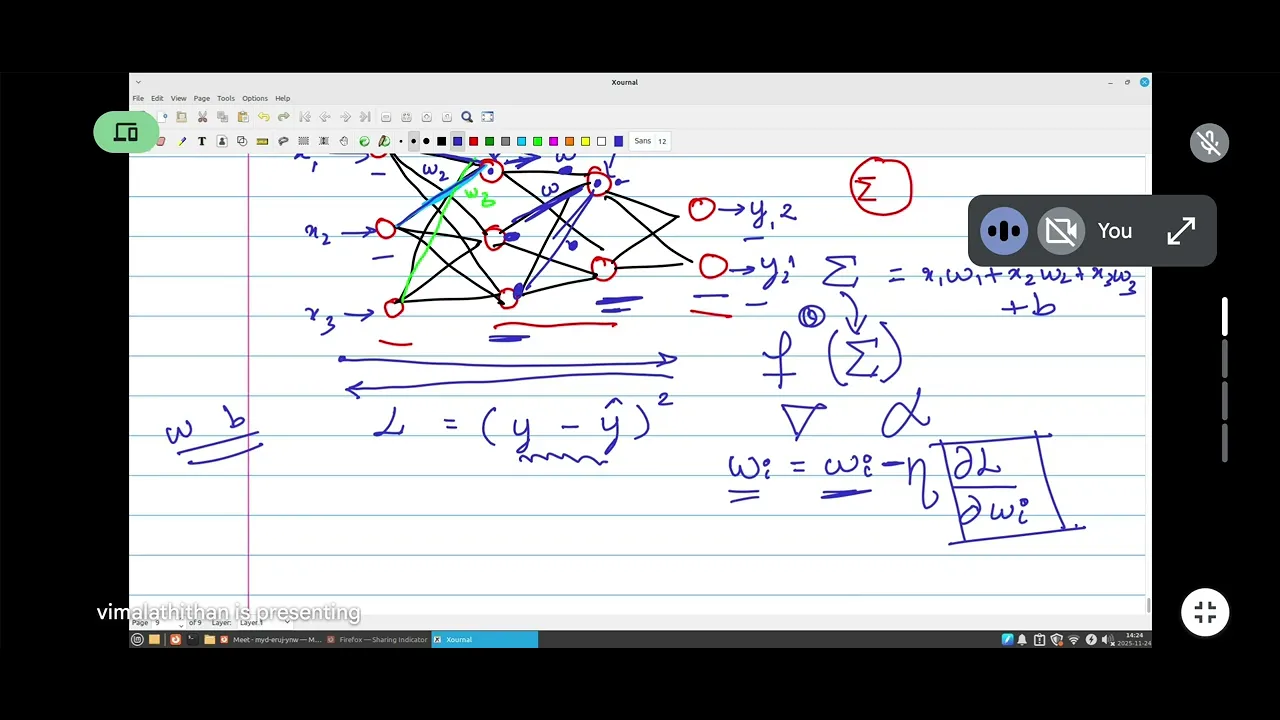 Xournal
File Edit View Page Tools Options Help
Sans 12
x₁ w₂ w
w₃ w
x₂ y₁ 2
Σ
You
y₂ 1 Σ = x₁w₁ + x₂w₂ + x₃w₃
+ b
x₃
f (Σ)
w b L = (y - ŷ)² ∇ α
wi = wi - η ∂L
∂wi
vimalathithan is presenting
Page 9 of 9 Layer: Layer 1
Meet - myd-eruj-ynw — M... Firefox — Sharing Indicator Xournal
14:24
2025-11-24